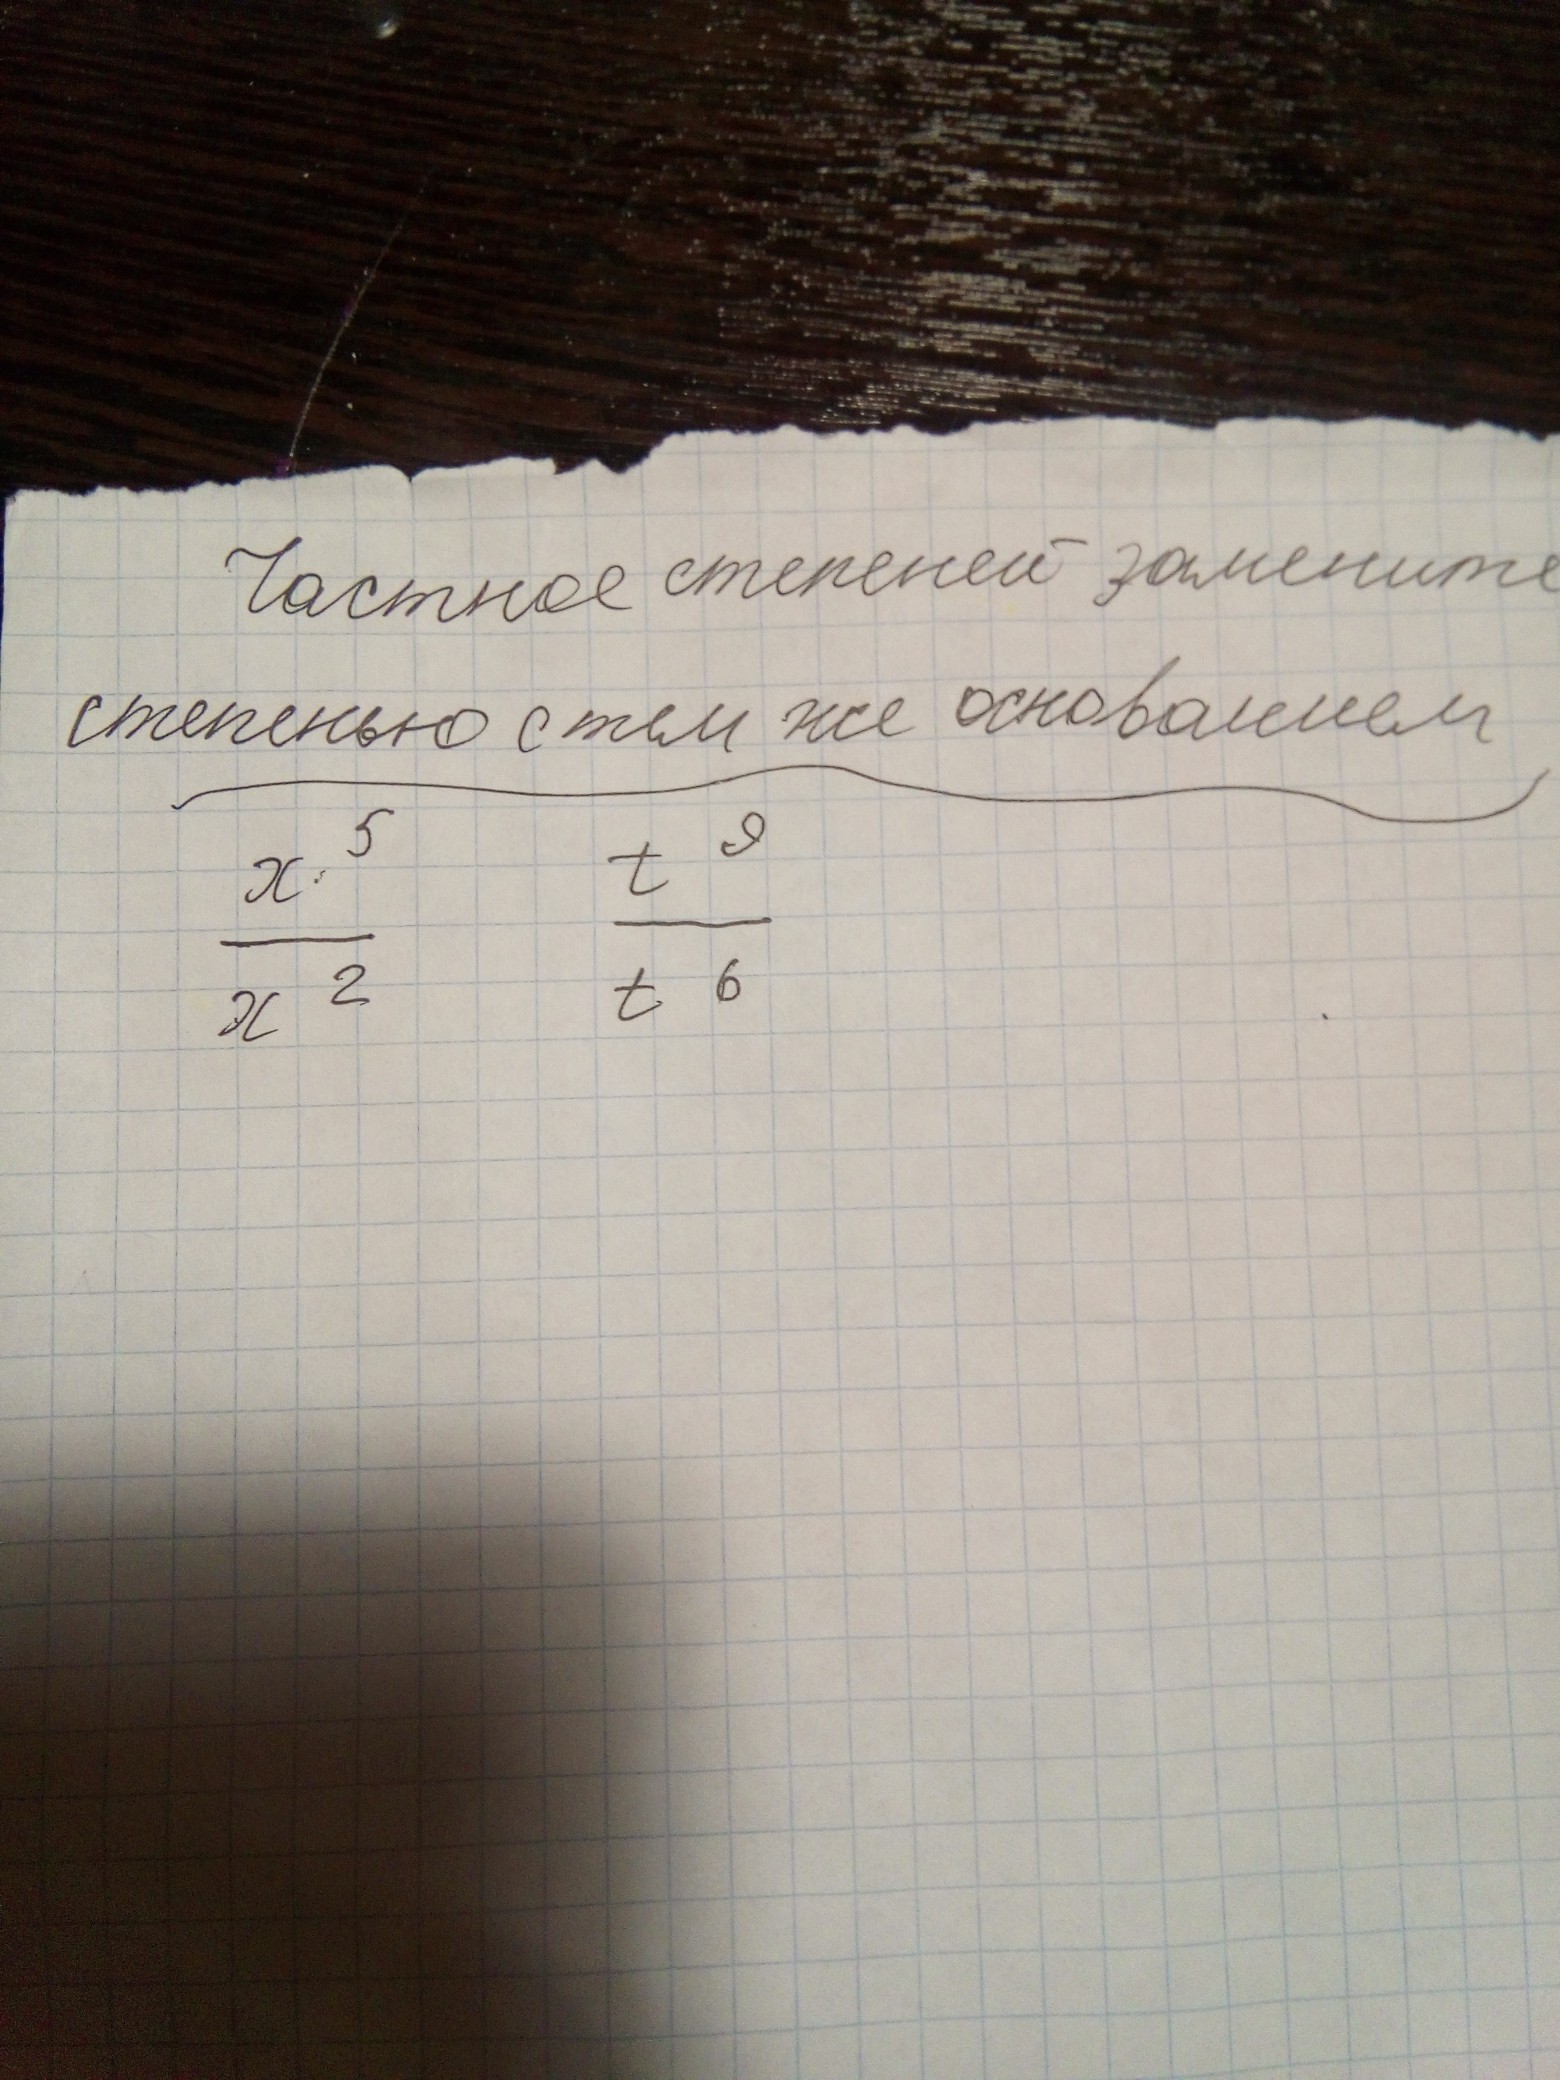 Частное степеней замените
степенью с тем же основанием
x^5 t^9
x^2 t^6